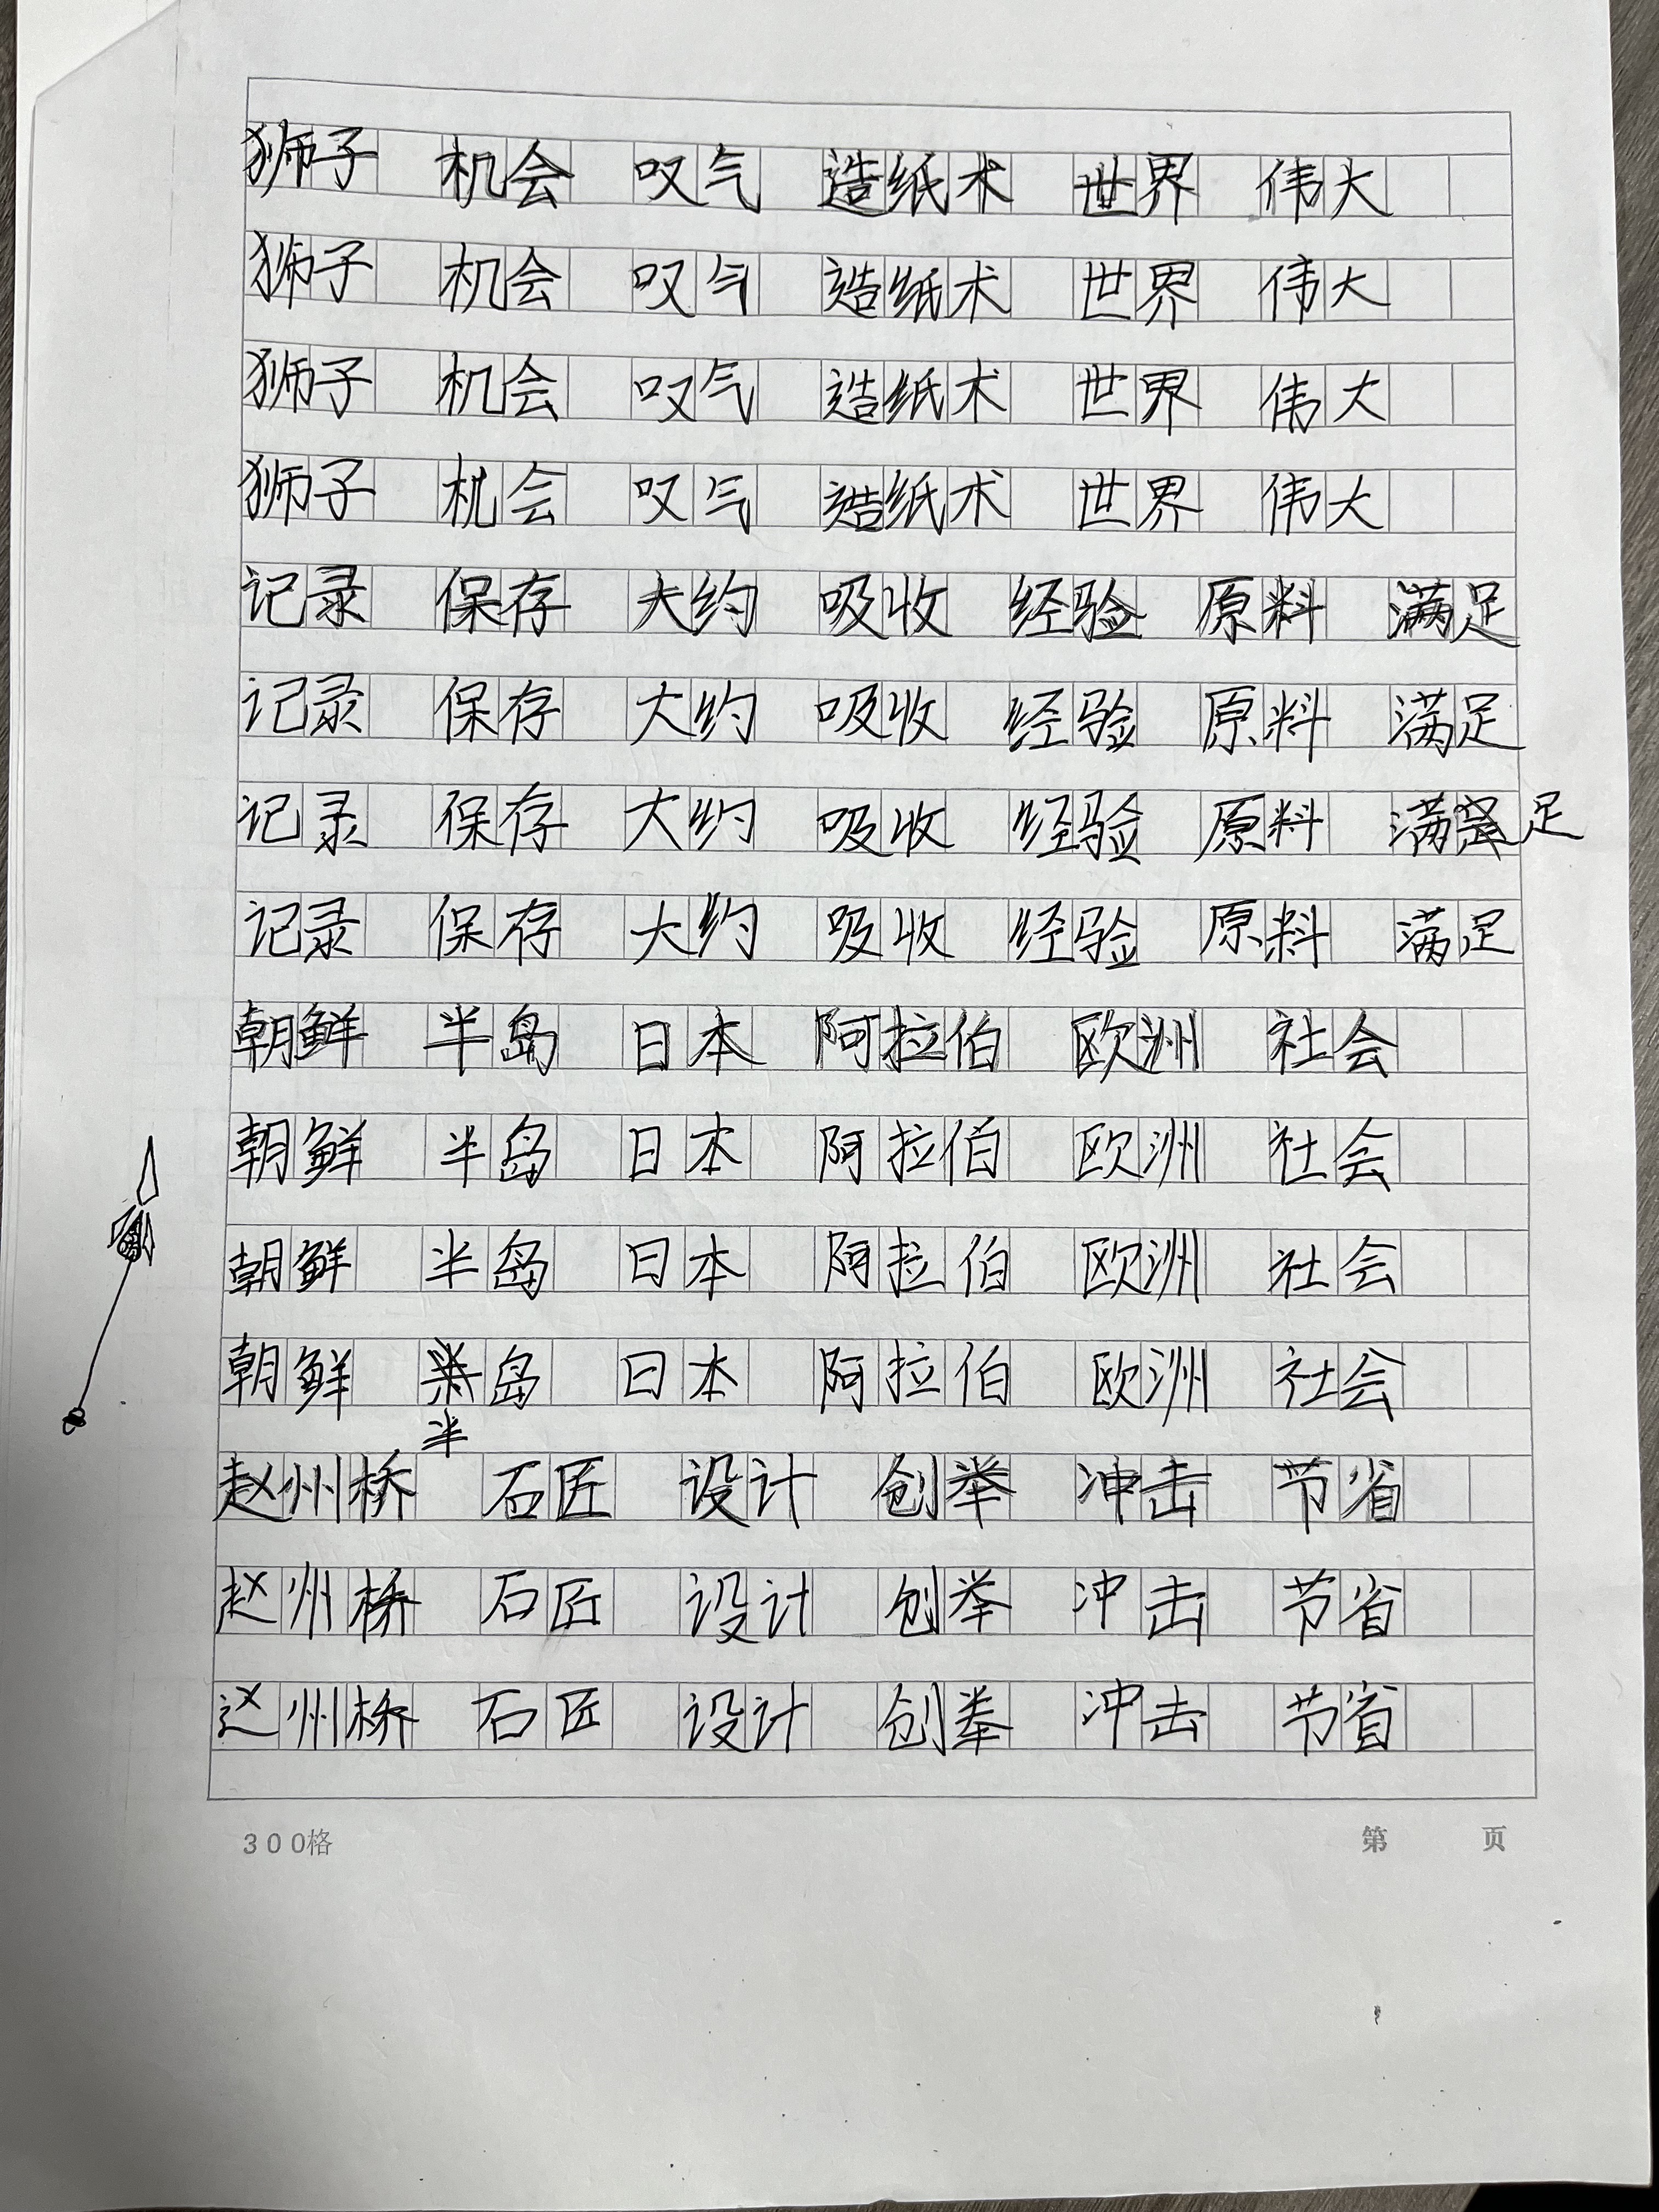 狮子 机会 叹气 造纸术 世界 伟大
狮子 机会 叹气 造纸术 世界 伟大
狮子 机会 叹气 造纸术 世界 伟大
狮子 机会 叹气 造纸术 世界 伟大
记录 保存 大约 吸收 经验 原料 满足
记录 保存 大约 吸收 经验 原料 满足
记录 保存 大约 吸收 经验 原料 满足
记录 保存 大约 吸收 经验 原料 满足
朝鲜 半岛 日本 阿拉伯 欧洲 社会
朝鲜 半岛 日本 阿拉伯 欧洲 社会
朝鲜 半岛 日本 阿拉伯 欧洲 社会
朝鲜 岛 日本 阿拉伯 欧洲 社会
半
赵州桥 石匠 设计 创举 冲击 节省
赵州桥 石匠 设计 创举 冲击 节省
赵州桥 石匠 设计 创举 冲击 节省
300格 第 页